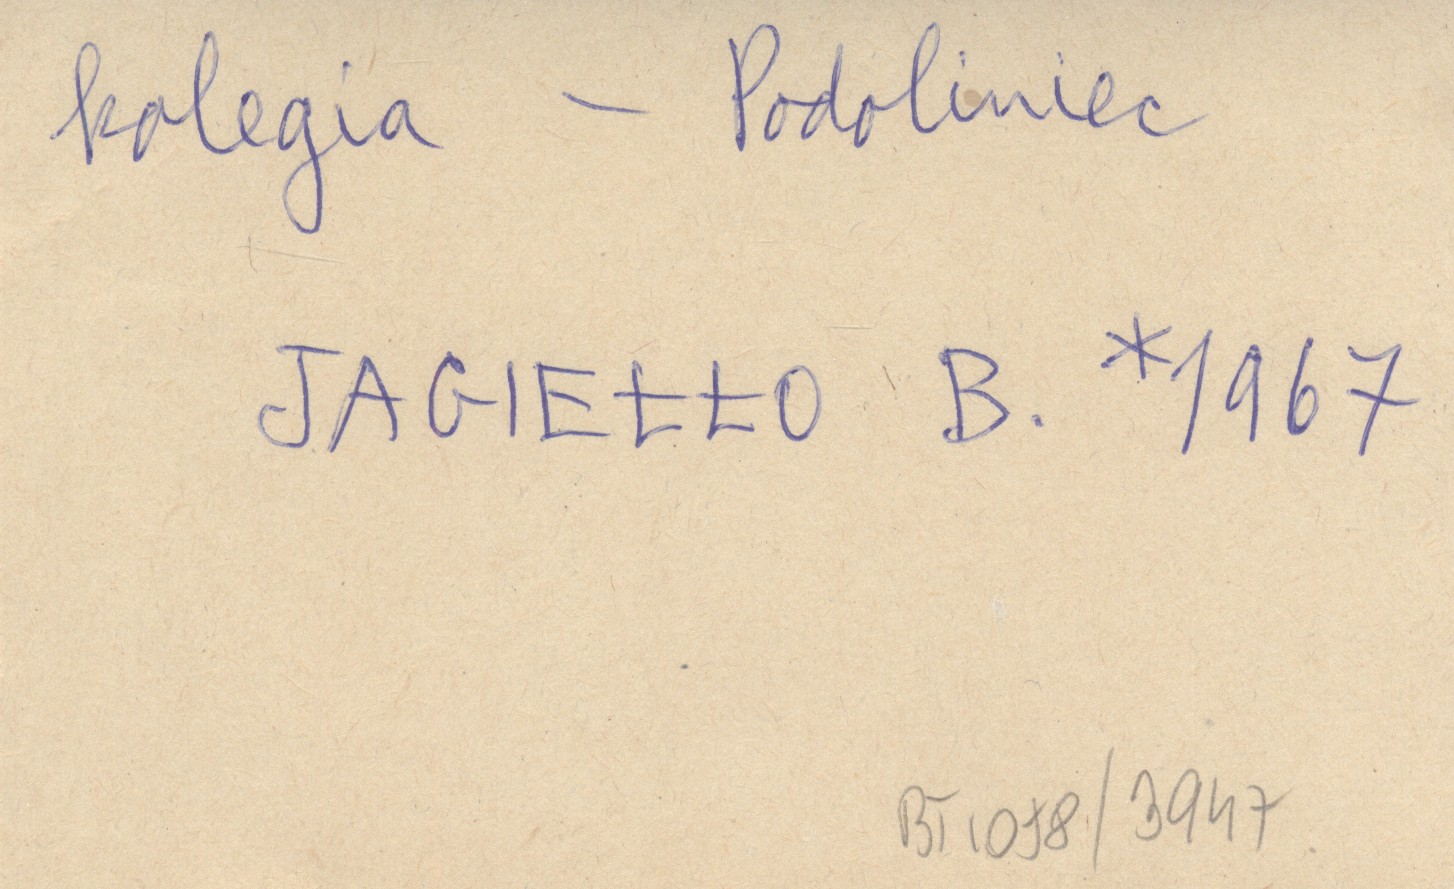 kolegia – Podoliniec
JAGIEŁŁO B. *1967
BT 1058/3947